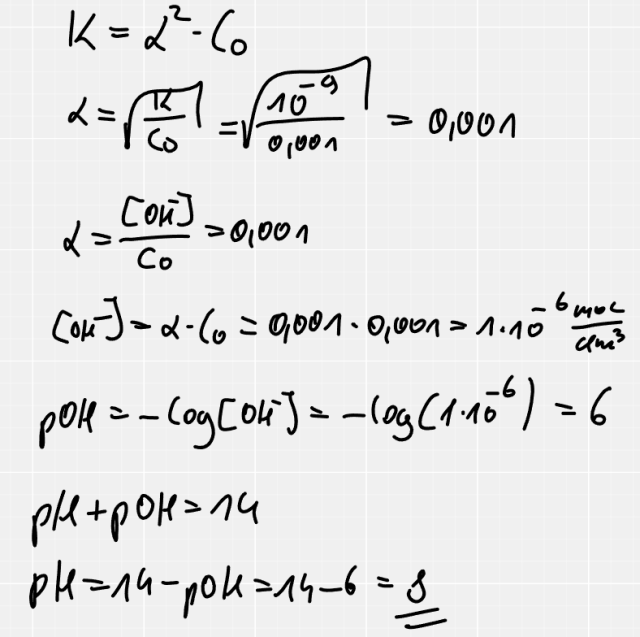 K = α² · C₀
α = √(K/C₀) = √(10⁻⁹/0,001) = 0,001
α = [OH⁻]/C₀ = 0,001
[OH⁻] = α · C₀ = 0,001 · 0,001 = 1 · 10⁻⁶ mol/dm³
pOH = -log[OH⁻] = -log(1·10⁻⁶) = 6
pH + pOH = 14
pH = 14 - pOH = 14 - 6 = 8